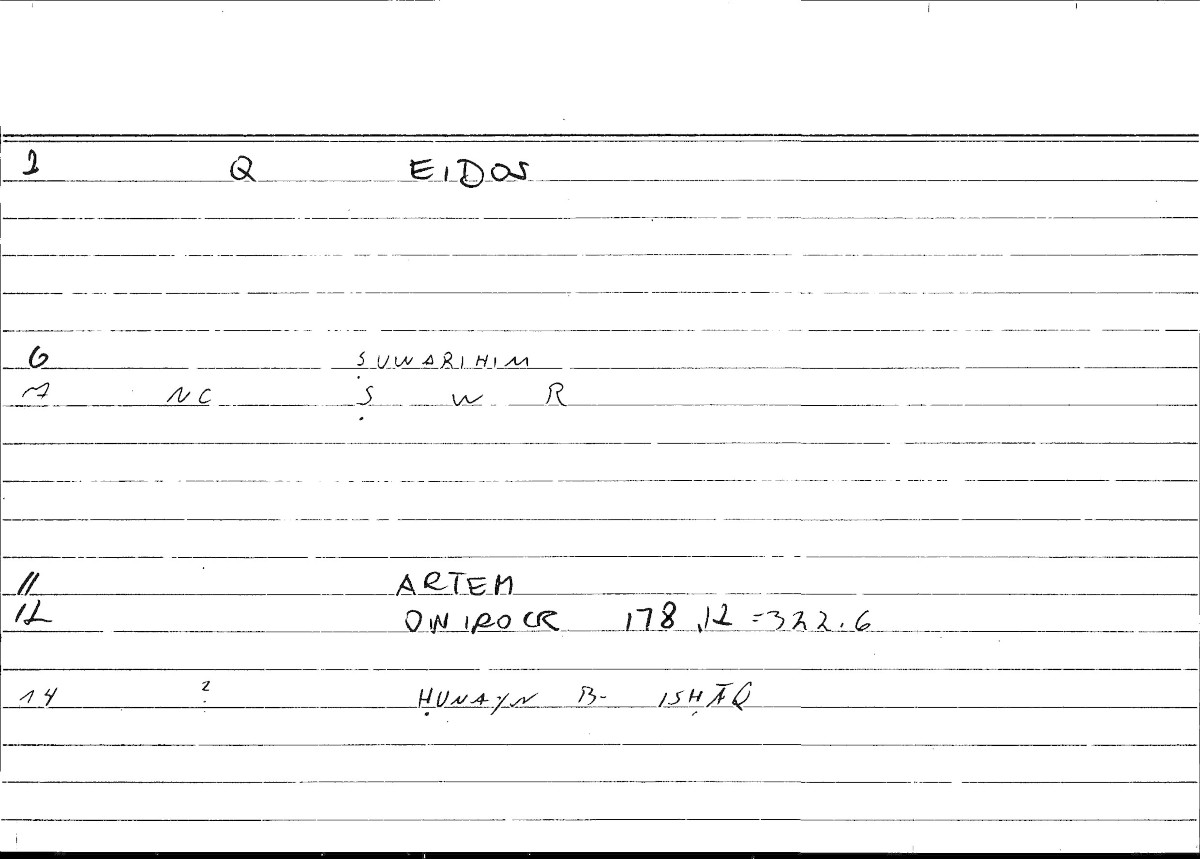 1 Q EIDOS
6 ṢUWARIHIM
7 NC Ṣ W R
11 ARTEM
12 ONIROCR 178,12 =322.6
14 2 ḤUNAYN B- ISḤĀQ